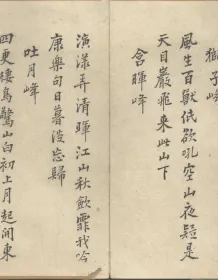 獅子峰
風生百獸低欲吼空山夜疑是
天目巖飛來此山下
含暉峰
演漾弄清暉江山秋飲霏我吟
康樂句日暮澹忘歸
吐月峰
四更棲鳥驚山白初上月起開東